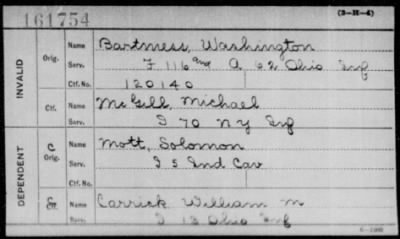 161754
(3-H-4)
INVALID
Orig. Name Bartmess, Washington
Serv. F 116 & A 62 Ohio Inf
Ctf. No. 120140
Ctf. Name McGill, Michael
Serv. I 70 N Y Inf
DEPENDENT
C Orig. Name Mott, Solomon
Serv. I 5 Ind Cav
Ctf. No.
Ctf. Name Carrick William M
Serv. I 13 Ohio Inf